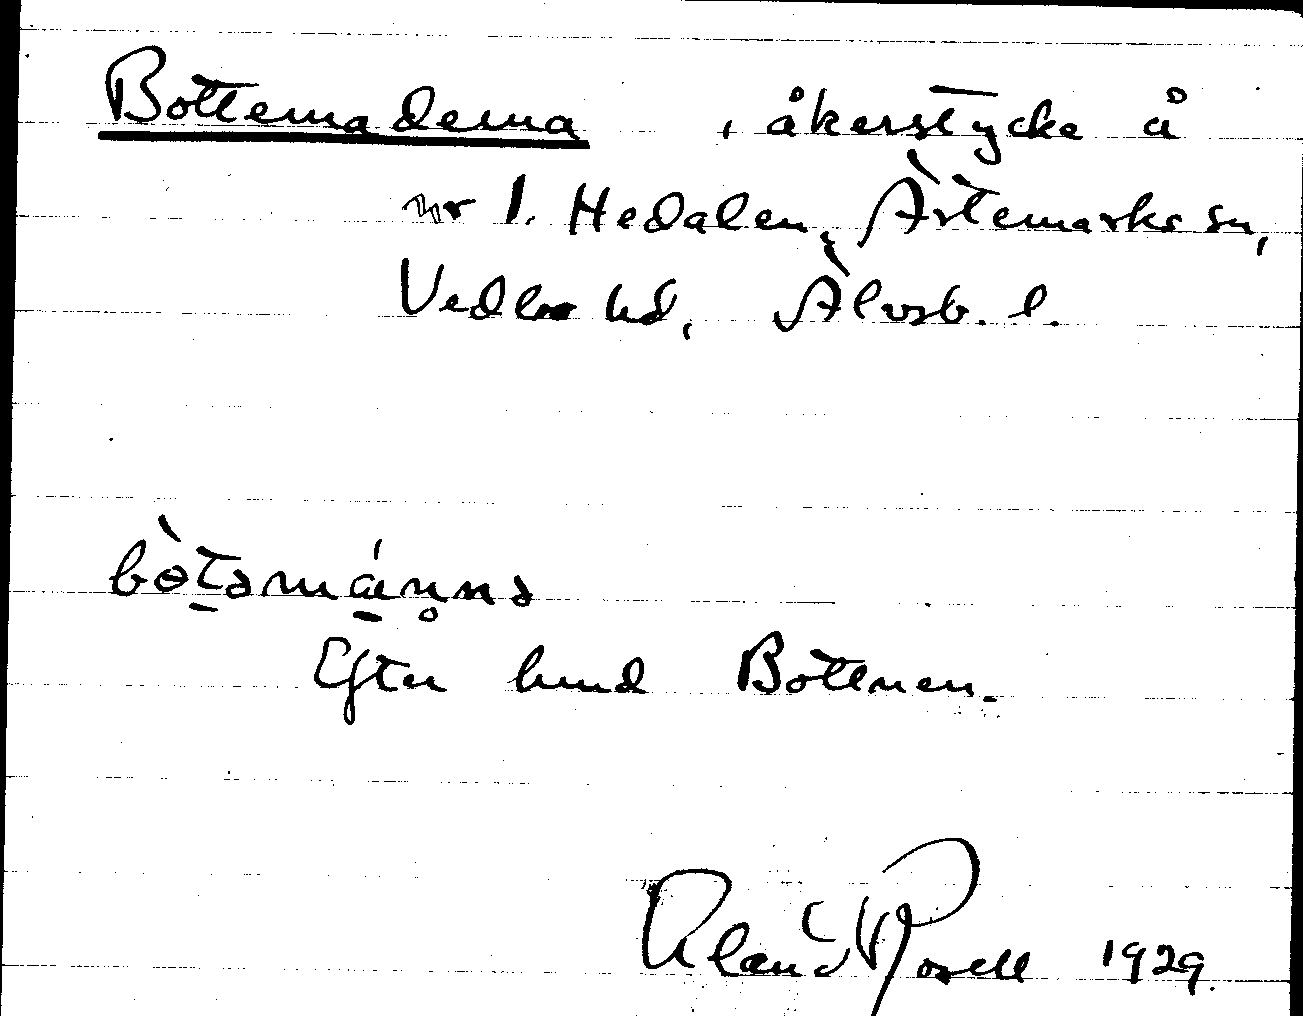 Bottemaderna, åkerstycke å
nr 1. Hedalen, Ärtemarks sn,
Vedbo hd, Älvsb. l.
bòtəmánnə
Efter hund Bottnen.
Rosell 1929.